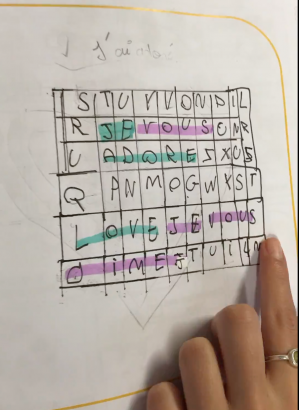 j'ai
S T U V V O N D I L
R J E V O U S C N R
U A D O R E J X U S
Q P N M O G W X S T
L O V E J E V O U S
O I M E J T U I L M